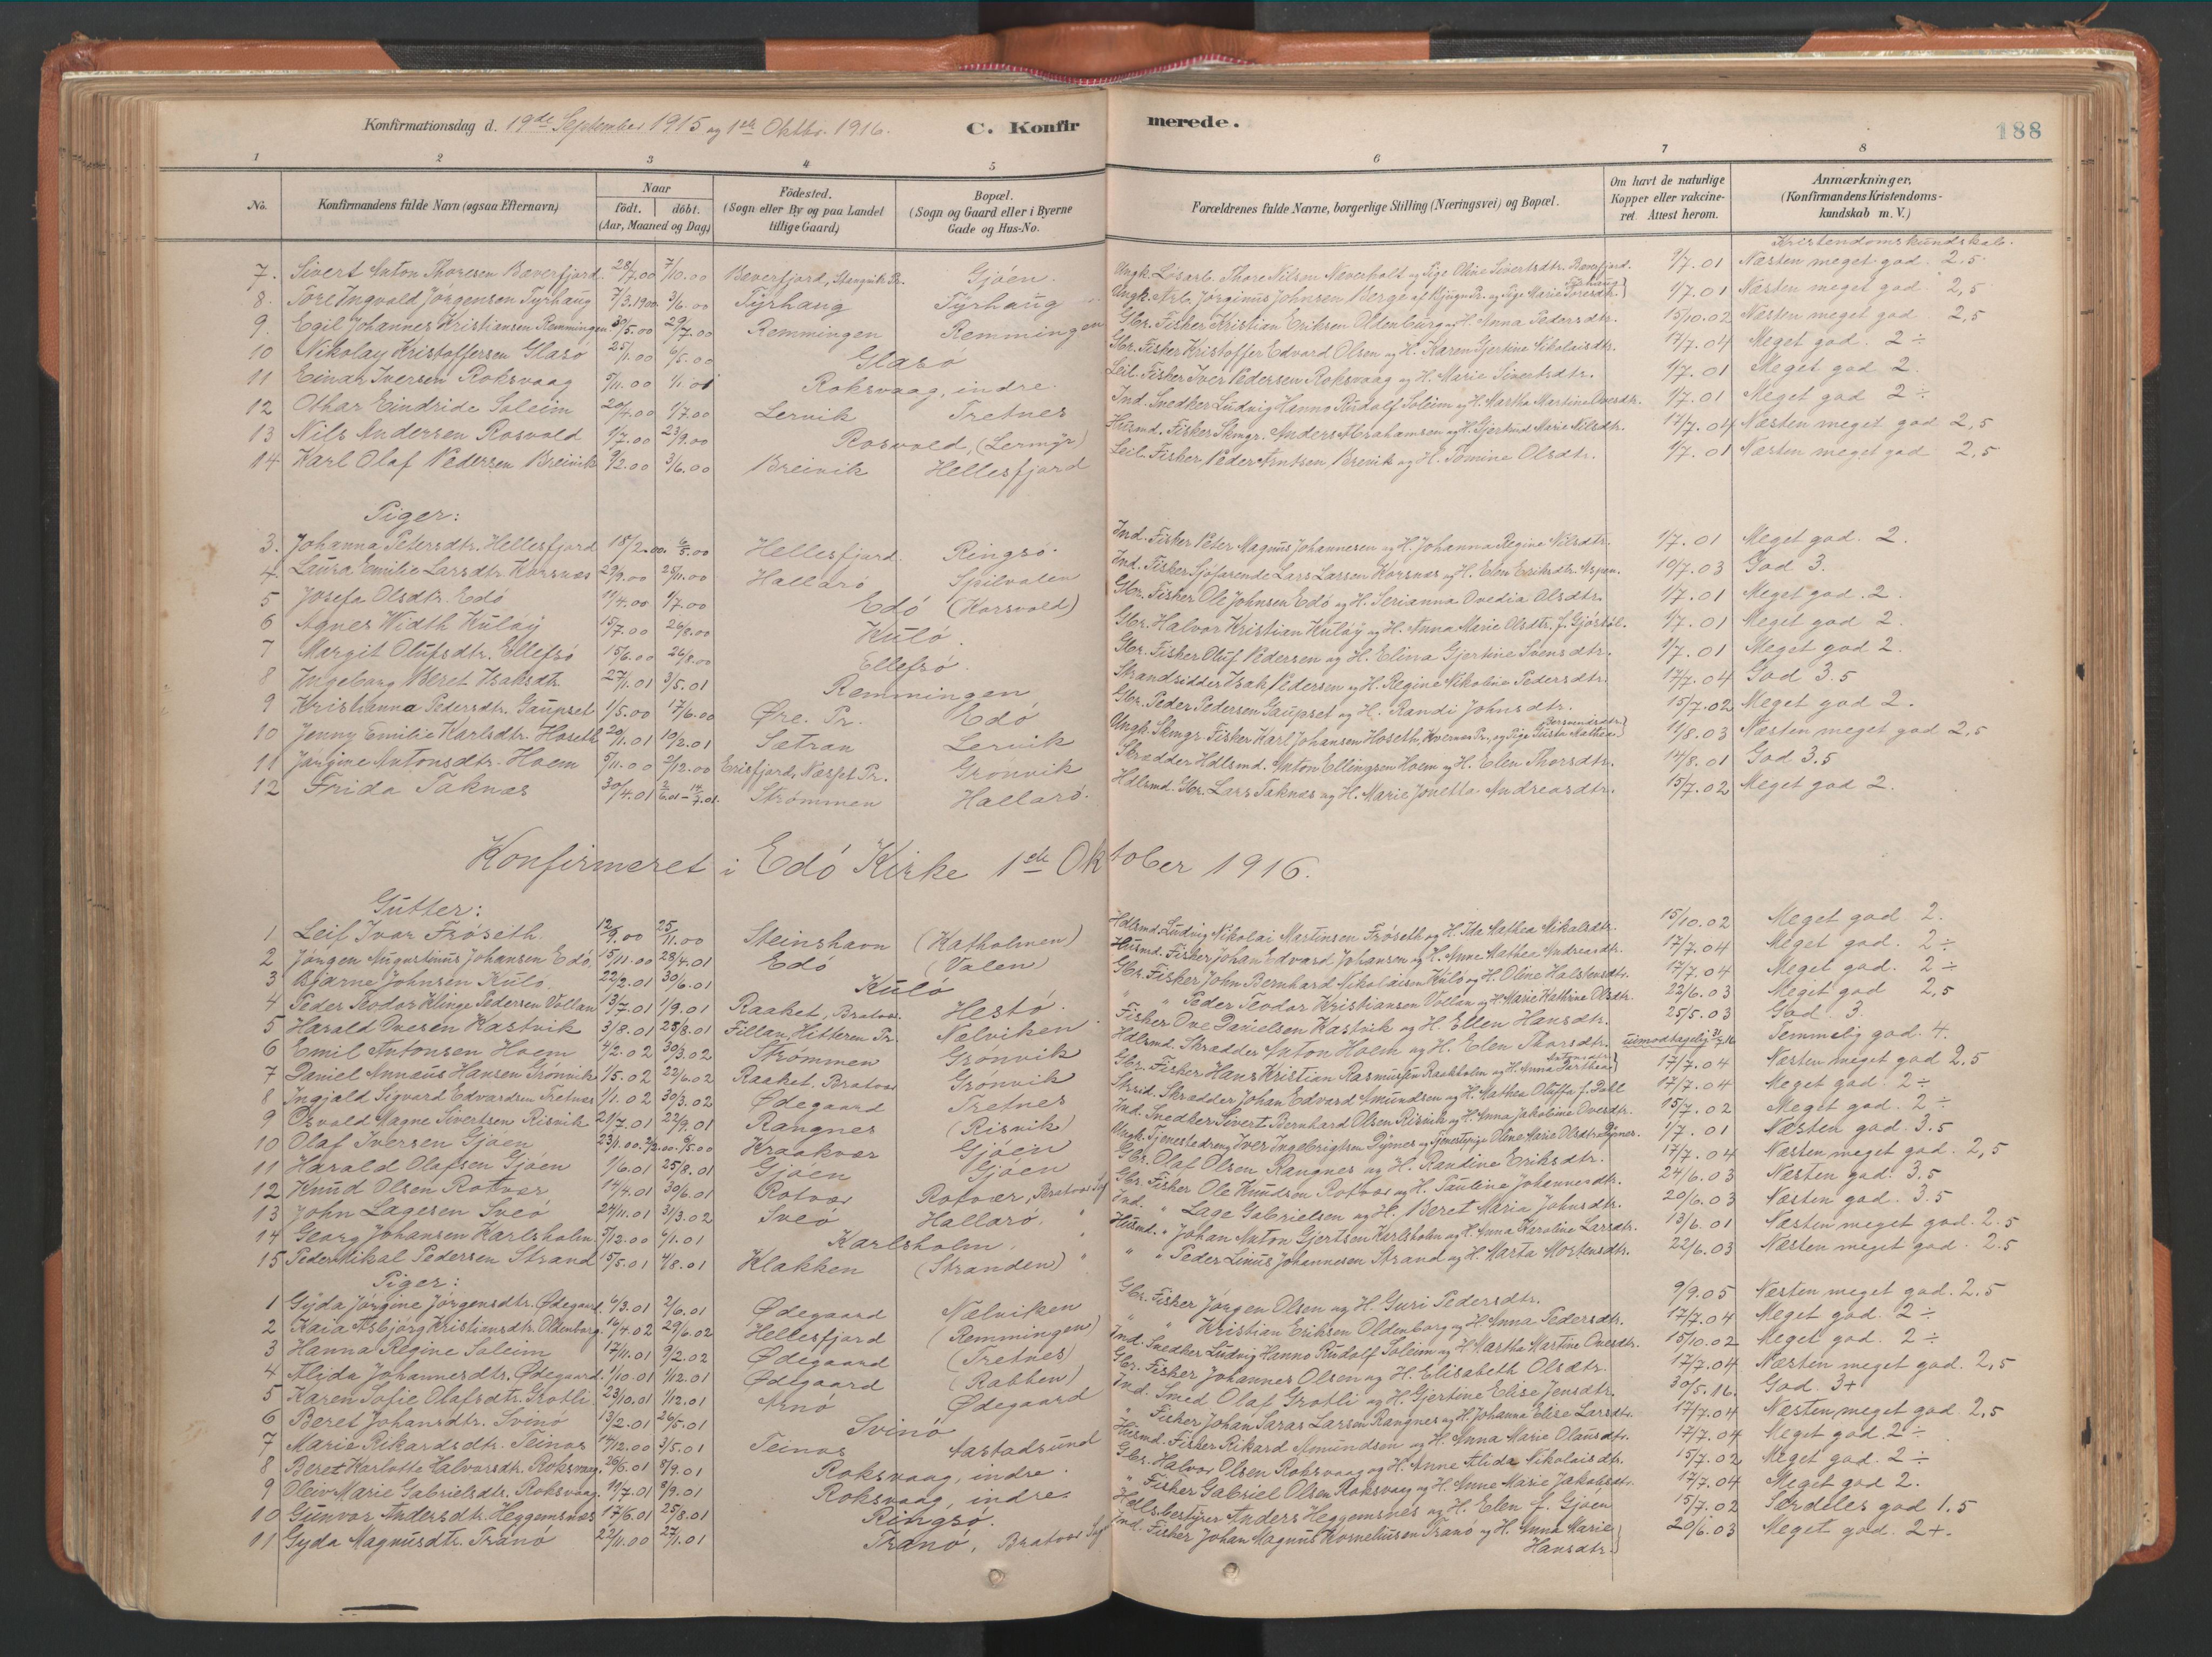 Konfirmationsdag d. 19de September 1915 og 1ste Oktbr. 1916. C. Konfirmerede. 188
1 2 3 4 5 6 7 8
No. Konfirmandens fulde Navn (ogsaa Efternavn) Naar födt. döbt. (Aar, Maaned og Dag) Födested. (Sogn eller By og paa Landet tillige Gaard) Bopæl. (Sogn og Gaard eller i Byerne Gade og Hus-No. Forældrenes fulde Navne, borgerlige Stilling (Næringsvei) og Bopæl. Om havt de naturlige Kopper eller vakcineret. Attest herom. Anmærkninger, (Konfirmandens Kristendomskundskab m. V.)
Kristendomskundskab.
7. Sivert Anton Thoresen Bæverfjord 28/7.00 7/10.00 Bæverfjord, Stangvik Pr. Gjøen. Ungk. Løsarb. Thore Nilsen Næverholt og Pige Oline Sivertsdtr. Bæverfjord. 1/7.01 Næsten meget god. 2.5
8. Tore Ingvald Jørgensen Tyrhaug 7/3.1900 3/6.00 Tyrhaug Tyrhaug Ungk. Arb. Jørginus Johnsen Berge af Kjugn Pr. og Pige Marie Toresdtr. Tyrhaug 1/7.01 Næsten meget god. 2,5
9. Egil Johannes Kristiansen Remmingen 30/5.00 29/7.00 Remmingen Remmingen Gbr. Fisker Kristian Eriksen Oldenburg og H. Anna Pedersdtr. 15/10.02 Næsten meget god 2,5
10 Nikolay Kristoffersen Glasø 25/1.00 6/5.00 Glasø Gbr. Fisker Kristoffer Edvard Olsen og H. Karen Gjertine Nikolaisdtr. 17/7.04 Meget god. 2 ÷
11 Einar Iversen Roksvaag 5/11.00 1/1 01 Roksvaag, indre. Leil. Fisker Iver Pedersen Roksvaag og H. Marie Sivertsdtr. 1/7.01 Meget god 2.
12 Othar Eindride Soleim 20/4.00 1/7.00 Lervik Tretnes Ind. Snedker Ludvig Hanno Rudolf Soleim og H. Martha Martine Ovesdtr. 1/7.01 Meget god 2 ÷
13 Nils Andersen Rosvold 1/7.00 23/9.00 Rosvold, (Lermyr) Husmd. Fisker Skmgr. Anders Abrahamsen og H. Gjertrud Marie Nilsdtr. 17/7.04 Næsten meget god 2,5
14 Karl Olaf Pedersen Breivik 9/2.00 3/6.00 Breivik Hellesfjord Leil. Fisker Peder Arntsen Breivik og H. Tomine Olsdtr. 1/7.01 Næsten meget god 2.5
Piger:
3. Johanna Petersdtr. Hellesfjord 18/2.00. 6/5.00 Hellesfjord. Ringsø. Ind. Fisker Peter Magnus Johannesen og H. Johanna Regine Nilsdtr. 1/7.01 Meget god. 2.
4. Laura Emilie Larsdtr. Korsnæs 29/9.00 25/11.00 Hallarø Spilvalen Ind. Fisker Sjøfarende Lars Larsen Korsnæs og H. Elen Eriksdtr. Aspen. 10/7.03 God 3.
5 Josefa Olsdtr. Edø 11/4.00 1/7.00 Edø (Korsvold) Gbr. Fisker Ole Johnsen Edø og H. Serianna Ovedia Olsdtr. 1/7.01 Meget god. 2.
6 Agnes Width Kuløy 15/7.00 26/8.00 Kulø. Gbr. Halvor Kristian Kuløy og H. Anna Marie Olsdtr. f. Gjøstøl. 1/7.01 Meget god 2.
7 Margit Olufsdtr. Ellefsø 15/6.00 26/8.00 Ellefsø. Gbr. Fisker Oluf Pedersen og H. Elina Gjertine Svensdtr. 1/7.01 Meget god 2.
8 Ingeborg Beret Isaksdtr. 27/1.01 3/5.01 Remmingen Strandsidder Isak Pedersen og H. Regine Nikoline Pedersdtr. 17/7.04 God 3.5
9 Kristianna Pedersdtr. Gaupset 1/5.00 17/6.00 Øre. Pr. Edø Gbr. Peder Pedersen Gaupset og H. Randi Johnsdtr. 15/7.02 Meget god 2.
10 Jenny Emilie Karlsdtr. Hoseth 20/1.01 10/2.01 Sætran Lervik Ungk. Skmgr. Fisker Karl Johansen Hoseth, Kvernæs Pr., og Pige Gusta Mathea 11/8.03 Næsten meget god 2.5
11 Jørgine Antonsdtr. Hoem 5/11.00 2/12.00 Erisfjord, Næsset Pr. Grønvik Skrædder Hdlsmd. Anton Ellingsen Hoem og H. Elen Thorsdtr. 14/8.01 God 3.5
12 Frida Taknæs 30/4.01 2/6.01 - 14/7.01. Strømmen Hallarø. Hdlsmd. Gbr. Lars Taknæs og H. Marie Jonetta Andreasdtr. 15/7.02 Meget god 2.
Konfirmeret i Edø Kirke 1ste Oktober 1916.
Gutter:
1 Leif Ivar Frøseth 12/9.00 25/11.00 Steinshavn (Kafholmen) Hdlsmd. Ludvig Nikolai Martinsen Frøseth og H. Ida Mathea Mikalsdtr. 15/10.02 Meget god 2.
2 Jørgen Augustinus Johansen Edø. 15/11.00 28/4.01 Edø (Valen) Husmd. Fisker Johan Edvard Johansen og H. Anne Mathea Andreasdtr. 17/7.04 Meget god. 2 ÷
3 Bjarne Johnsen Kulø. 22/2.01 30/6.01 Kulø Gbr. Fisker John Bernhard Nikolaisen Kulø og H. Oline Halstensdtr. 17/7.04 Meget god. 2 ÷
4 Peder Teodor Klinge Pedersen Vollan 13/7.01 1/9.01 Raaket, Bratvær Hestø. " " Peder Teodor Kristiansen Vollan og H. Marie Kathrine Olsdtr. 22/6.03 Meget god 2,5
5 Harald Ovesen Kastvik 3/8.01 25/8.01 Fillan, Hitteren Pr. Nælviken Fisker Ove Danielsen Kastvik og H. Ellen Hansdtr. 25/5.03 God 3.
6 Emil Antonsen Hoem 4/2.02 30/3.02 Strømmen Grønvik Hdlsmd. Skrædder Anton Hoem og H. Elen Thorsdtr. uimodtagelig Temmelig god 4.
7 Daniel Annæus Hansen Grønvik 1/5.02 22/6.02 Raaket. Bratvær Grønvik Gbr. Fisker Hans Kristian Rasmussen Raakholm og H. Anna Parthea 17/7.04 Næsten meget god 2.5
8 Ingjald Sigvard Edvardsen Tretnes 1/1.02 30/3.02 Ødegaard Tretnes Skrædder Johan Edvard Amundsen og H. Mathea Oluffa f. Dahl 17/7.04 Meget god. 2 ÷
9 Osvald Magne Sivertsen Risvik 21/7.01 22/9.01 Rangnes (Risvik) Ind. Snedker Sivert Bernhard Olsen Risvik og H. Anna Jakobine Ovesdtr. 15/7.02 Meget god. 2 ÷
10 Olaf Iversen Gjøen Kraakvær Gjøen Ungk. Tjenestedreng Iver Ingebrigtsen Dyrnes og Tjenestepige Oline Marie Olsdtr. Dyrnes. 1/7.01 Næsten god. 3.5
11 Harald Olafsen Gjøen 1/6.01 25/8.01 Gjøen Gjøen Gbr. Olaf Olsen Rangnes og H. Randine Eriksdtr. 17/7.04 Næsten meget god. 2,5
12 Knud Olsen Rotvær 14/4.01 30/6.01 Rotvær Rotvær, Bratvær Sg. Gbr. Fisker Ole Knudsen Rotvær og H. Pauline Johannesdtr. 24/6.03 Næsten god. 3.5
13 John Lagesen Sveø 24/11.01 31/3.02 Sveø Hallarø. " Ind. " Lage Gabrielsen og H. Beret Maria Johnsdtr. 20/6.03 Næsten god. 3.5
14 Georg Johansen Karlsholm 5/12.00 6/1.01 Karlsholm. " Husmd. " Johan Anton Gjertsen Karlsholm og H. Anna Karoline Larsdtr. 13/6.01 Næsten meget god. 2.5
15 Peder Mikal Pedersen Strand 15/5.01 4/8.01 Klakken (Stranden) " " Peder Linus Johannesen Strand og H. Marta Mortensdtr. 22/6.03 Næsten meget god. 2.5
Piger:
1 Gyda Jørgine Jørgensdtr. Ødegaard. 6/3.01 2/6.01 Ødegaard Nælviken Gbr. Fisker Jørgen Olsen og H. Guri Pedersdtr. 9/9.05 Næsten meget god. 2.5
2 Kaia Asbjørg Kristiansdtr. Oldenborg. 16/4.02 29/6.02 Hellesfjord (Remmingen) " " Kristian Eriksen Oldenborg og H. Anna Pedersdtr. 17/7.04 Meget god. 2 ÷
3 Hanna Regine Soleim 17/11.01 9/2.02 Ødegaard (Tretnes) Ind. Snedker Ludvig Hanno Rudolf Soleim og H. Martha Martine Ovesdtr. 15/10.02 Meget god. 2 ÷
4 Alida Johannesdtr. Ødegaard. 1/10.01 1/12.01 Ødegaard (Rabben) Gbr. Fisker Johannes Olsen og H. Elisabeth Olsdtr. 17/7.04 Næsten meget god. 2,5
5 Karen Sofie Olafsdtr. Grøtli 23/10.01 1/12.01 Arnø Ødegaard Ind. Smed Olaf Grøtli og H. Gjertine Elise Jensdtr. 30/5.16. God. 3+
6 Beret Johansdtr. Svinø 13/2.01 26/5.01 Svinø " Fisker Johan Seras Larsen Rangnes og H. Johanna Elise Larsdtr. 17/7.04 Næsten meget god. 2,5
7 Marie Rikardsdtr. Teinæs 14/12.00 3/5.01 Teinæs Aastadsund Husmd. Fisker Rikard Amundsen og H. Anna Marie Olausdtr. 17/7.04 Meget god. 2 ÷
8 Beret Karlotte Halvorsdtr. Roksvaag. 26/6.01 8/9.01 Roksvaag, indre. Gbr. Halvor Olsen Roksvaag og H. Anne Alida Nikolaisdtr. 15/7.02 Meget god. 2 ÷
9 Oleiv Marie Gabrielsdtr. Roksvaag. 11/7.01 8/9.01 Roksvaag, indre. " Fisker Gabriel Olsen Roksvaag og H. Anne Marie Jakobsdtr. 17/7.04 Meget god 2.
10 Gunvor Andersdtr. Heggemsnes 17/6.01 25/8.01 Ringsø. Hdlsbestyrer Anders Heggemsnes og H. Elen f. Gjøen 15/7.02 Særdeles god 1.5
11 Gyda Magnusdtr. Tranø 22/11.00 27/1.01 Tranø, Bratvær Sg. Ind. Fisker Johan Magnus Korneliusen Tranø og H. Anna Marie 20/6.03 Meget god. 2+.
Hansdtr.